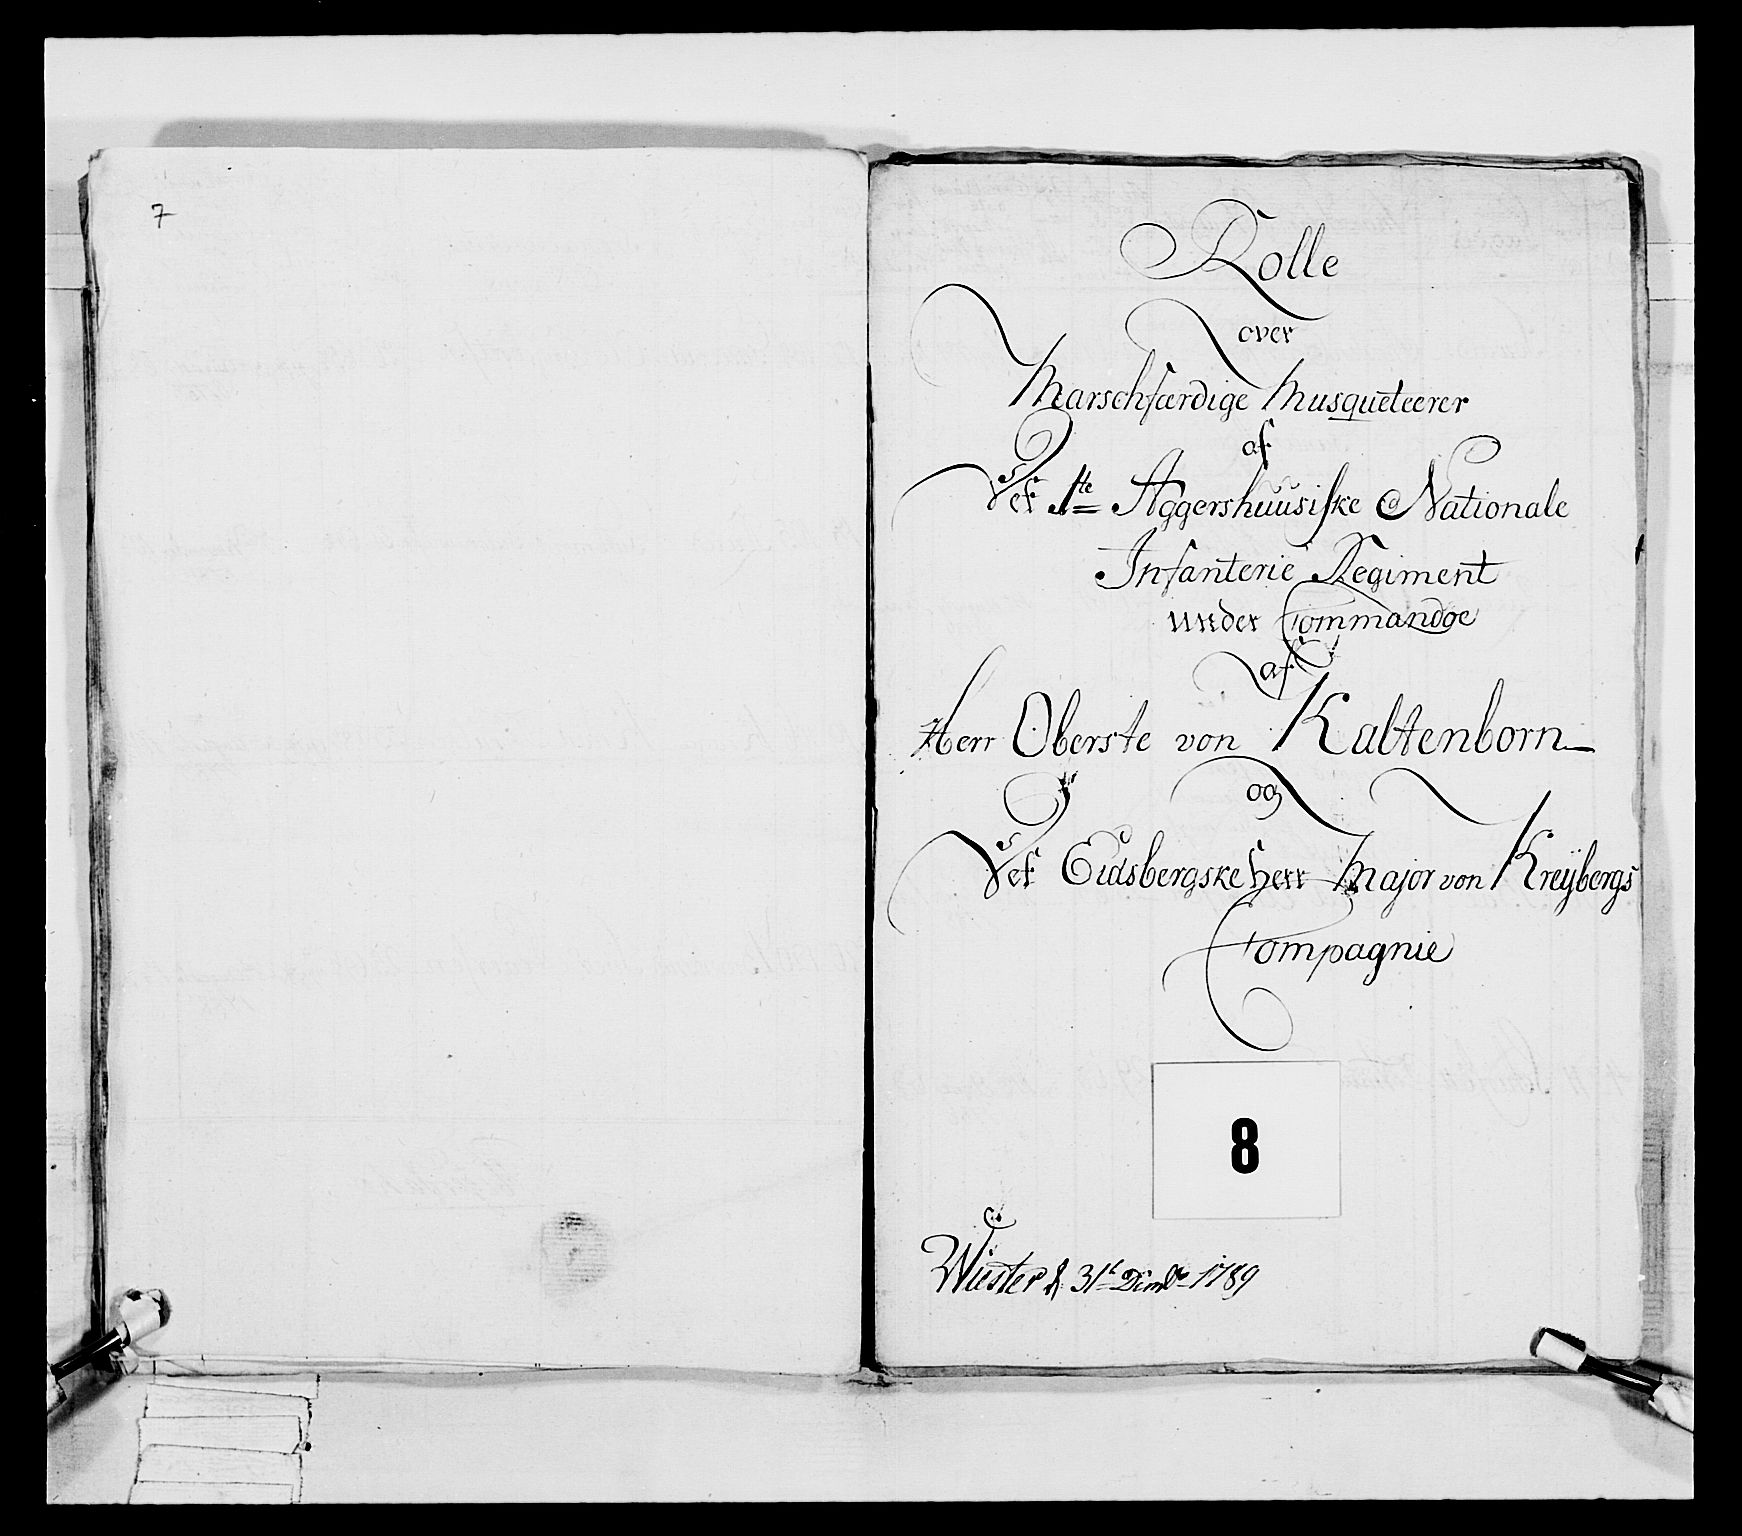 7
Rolle
over
Marschfærdige Musqueteerer
af
Det 1te Aggershuusiske Nationale
Infanterie Regiment
under Commandoe
af
Herr Oberste von Kaltenborn
og
Det Eidsbergske Herr Major von Kreÿbergs
Compagnie
8
d. 31te Decembr 1789